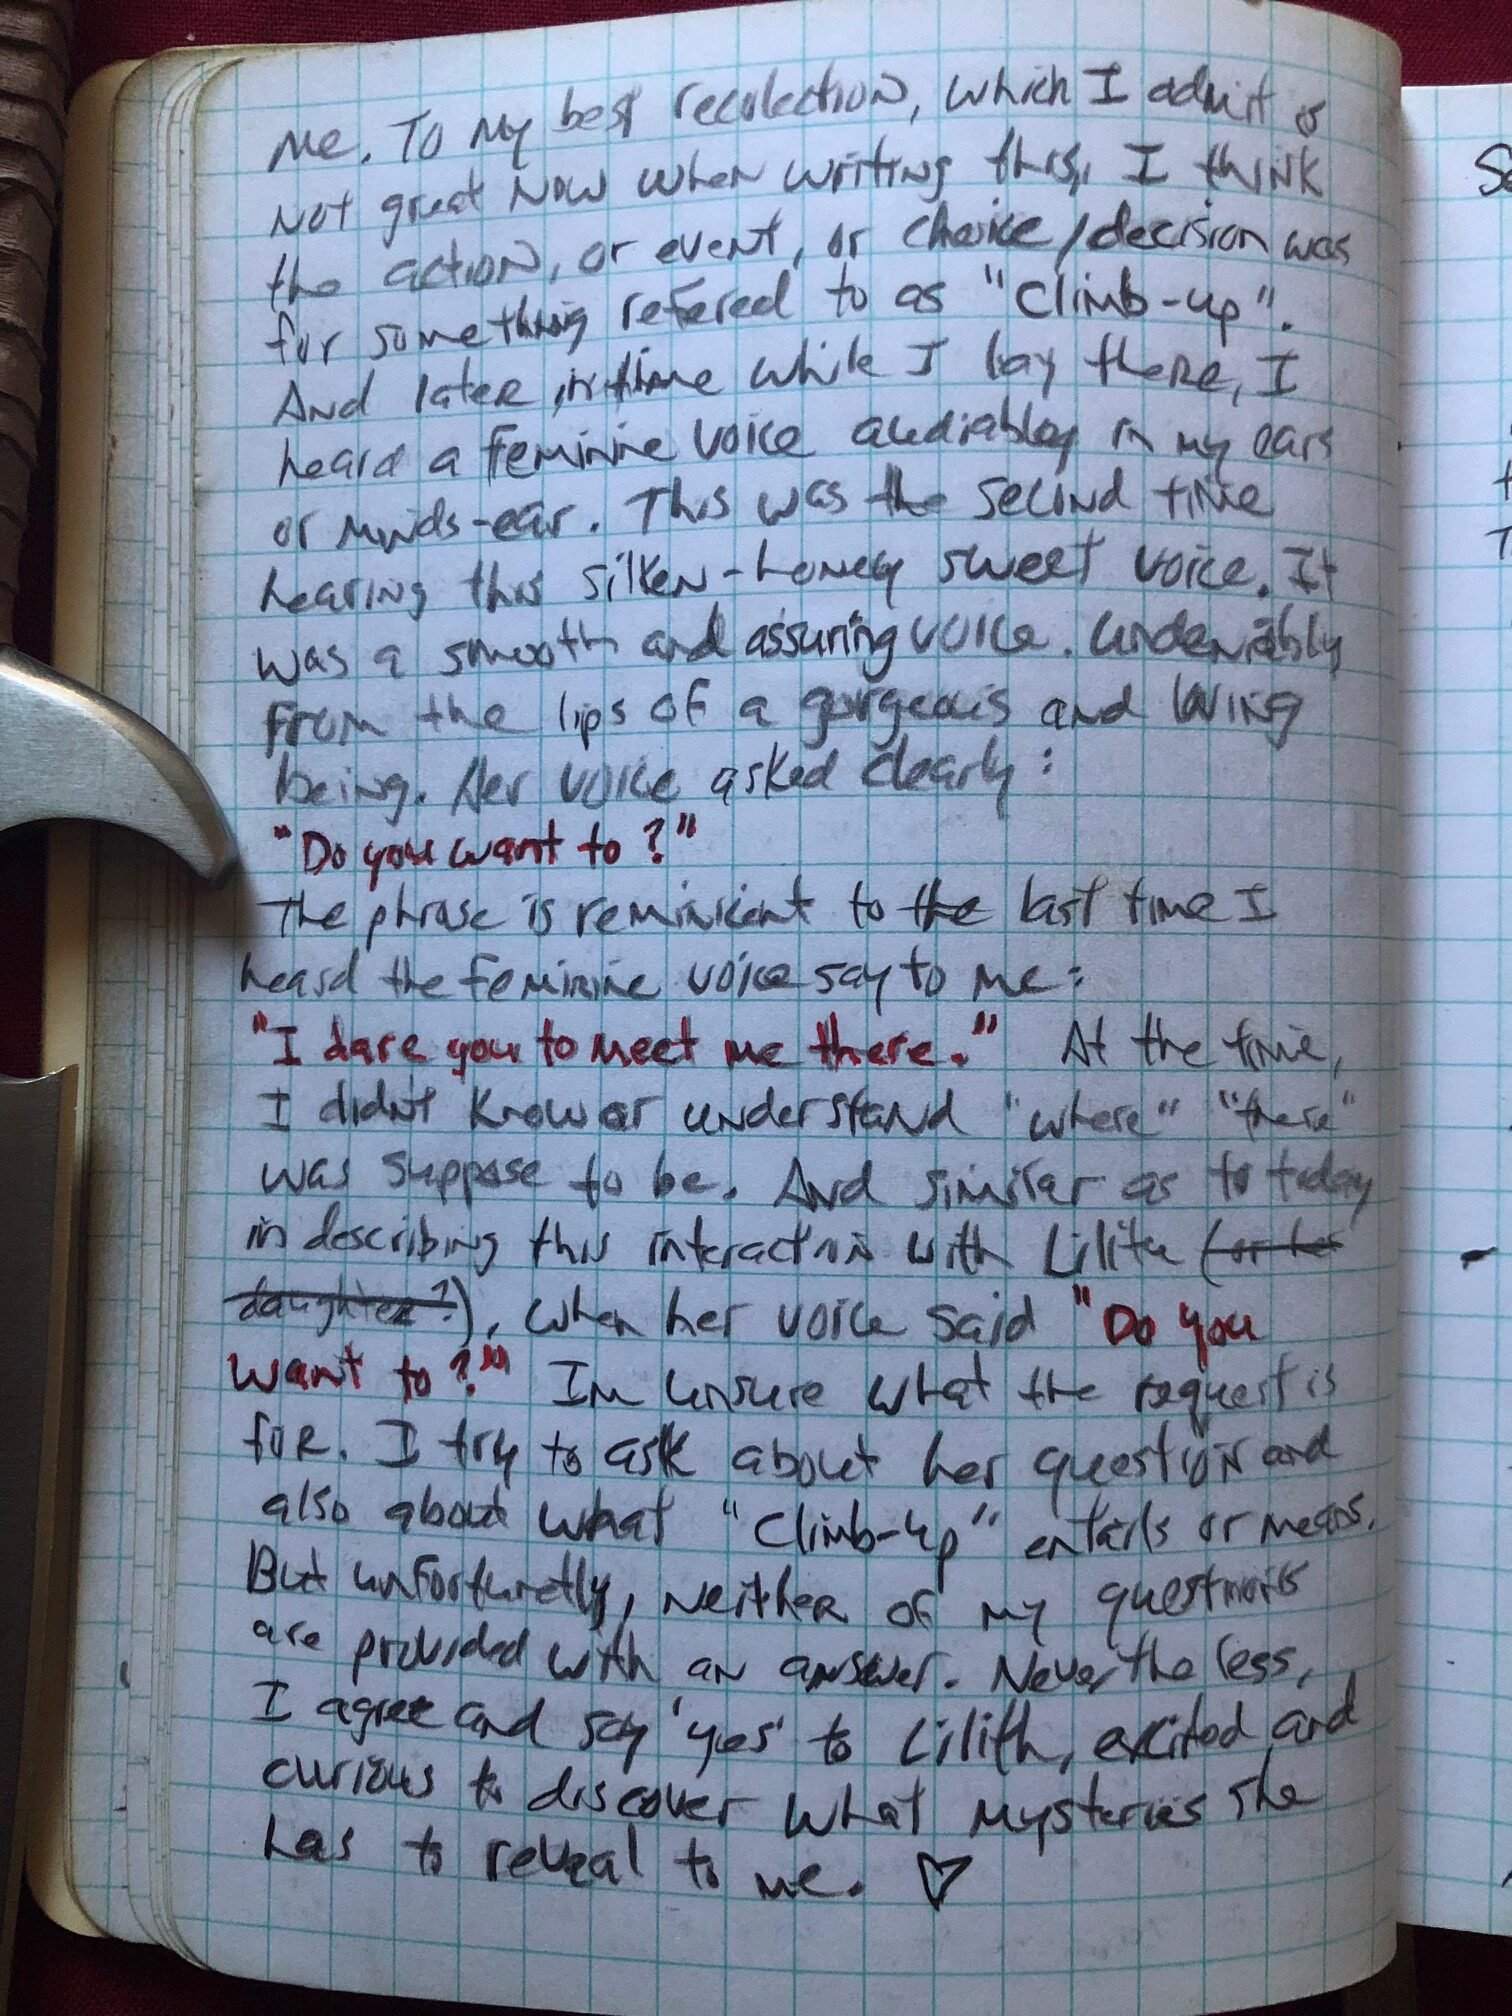 me. To my best recolection, which I admit is
not great now when writing this, I think
the action, or event, or choice/decision was
for something refered to as "Climb-up".
And later in time while I lay there, I
heard a feminine voice audiabley in my ears
or minds-ear. This was the second time
hearing this silken-honey sweet voice. It
was a smooth and assuring voice. undeniably
from the lips of a gorgeous and loving
being. Her voice asked clearly:
"Do you want to?"
The phrase is reminicent to the last time I
heard the feminine voice say to me:
"I dare you to meet me there." At the time,
I didn't know or understand "where" "there"
was suppose to be. And similar as to today
in describing this interaction with Lilith (or her
daughter?), when her voice said "Do you
want to?" Im unsure what the request is
for. I try to ask about her question and
also about what "Climb-up" entails or means.
But unfortunetly, neither of my questions
are provided with an answer. Never the less,
I agree and say 'yes' to Lilith, excited and
curious to discover what mysteries she
has to reveal to me. ♡